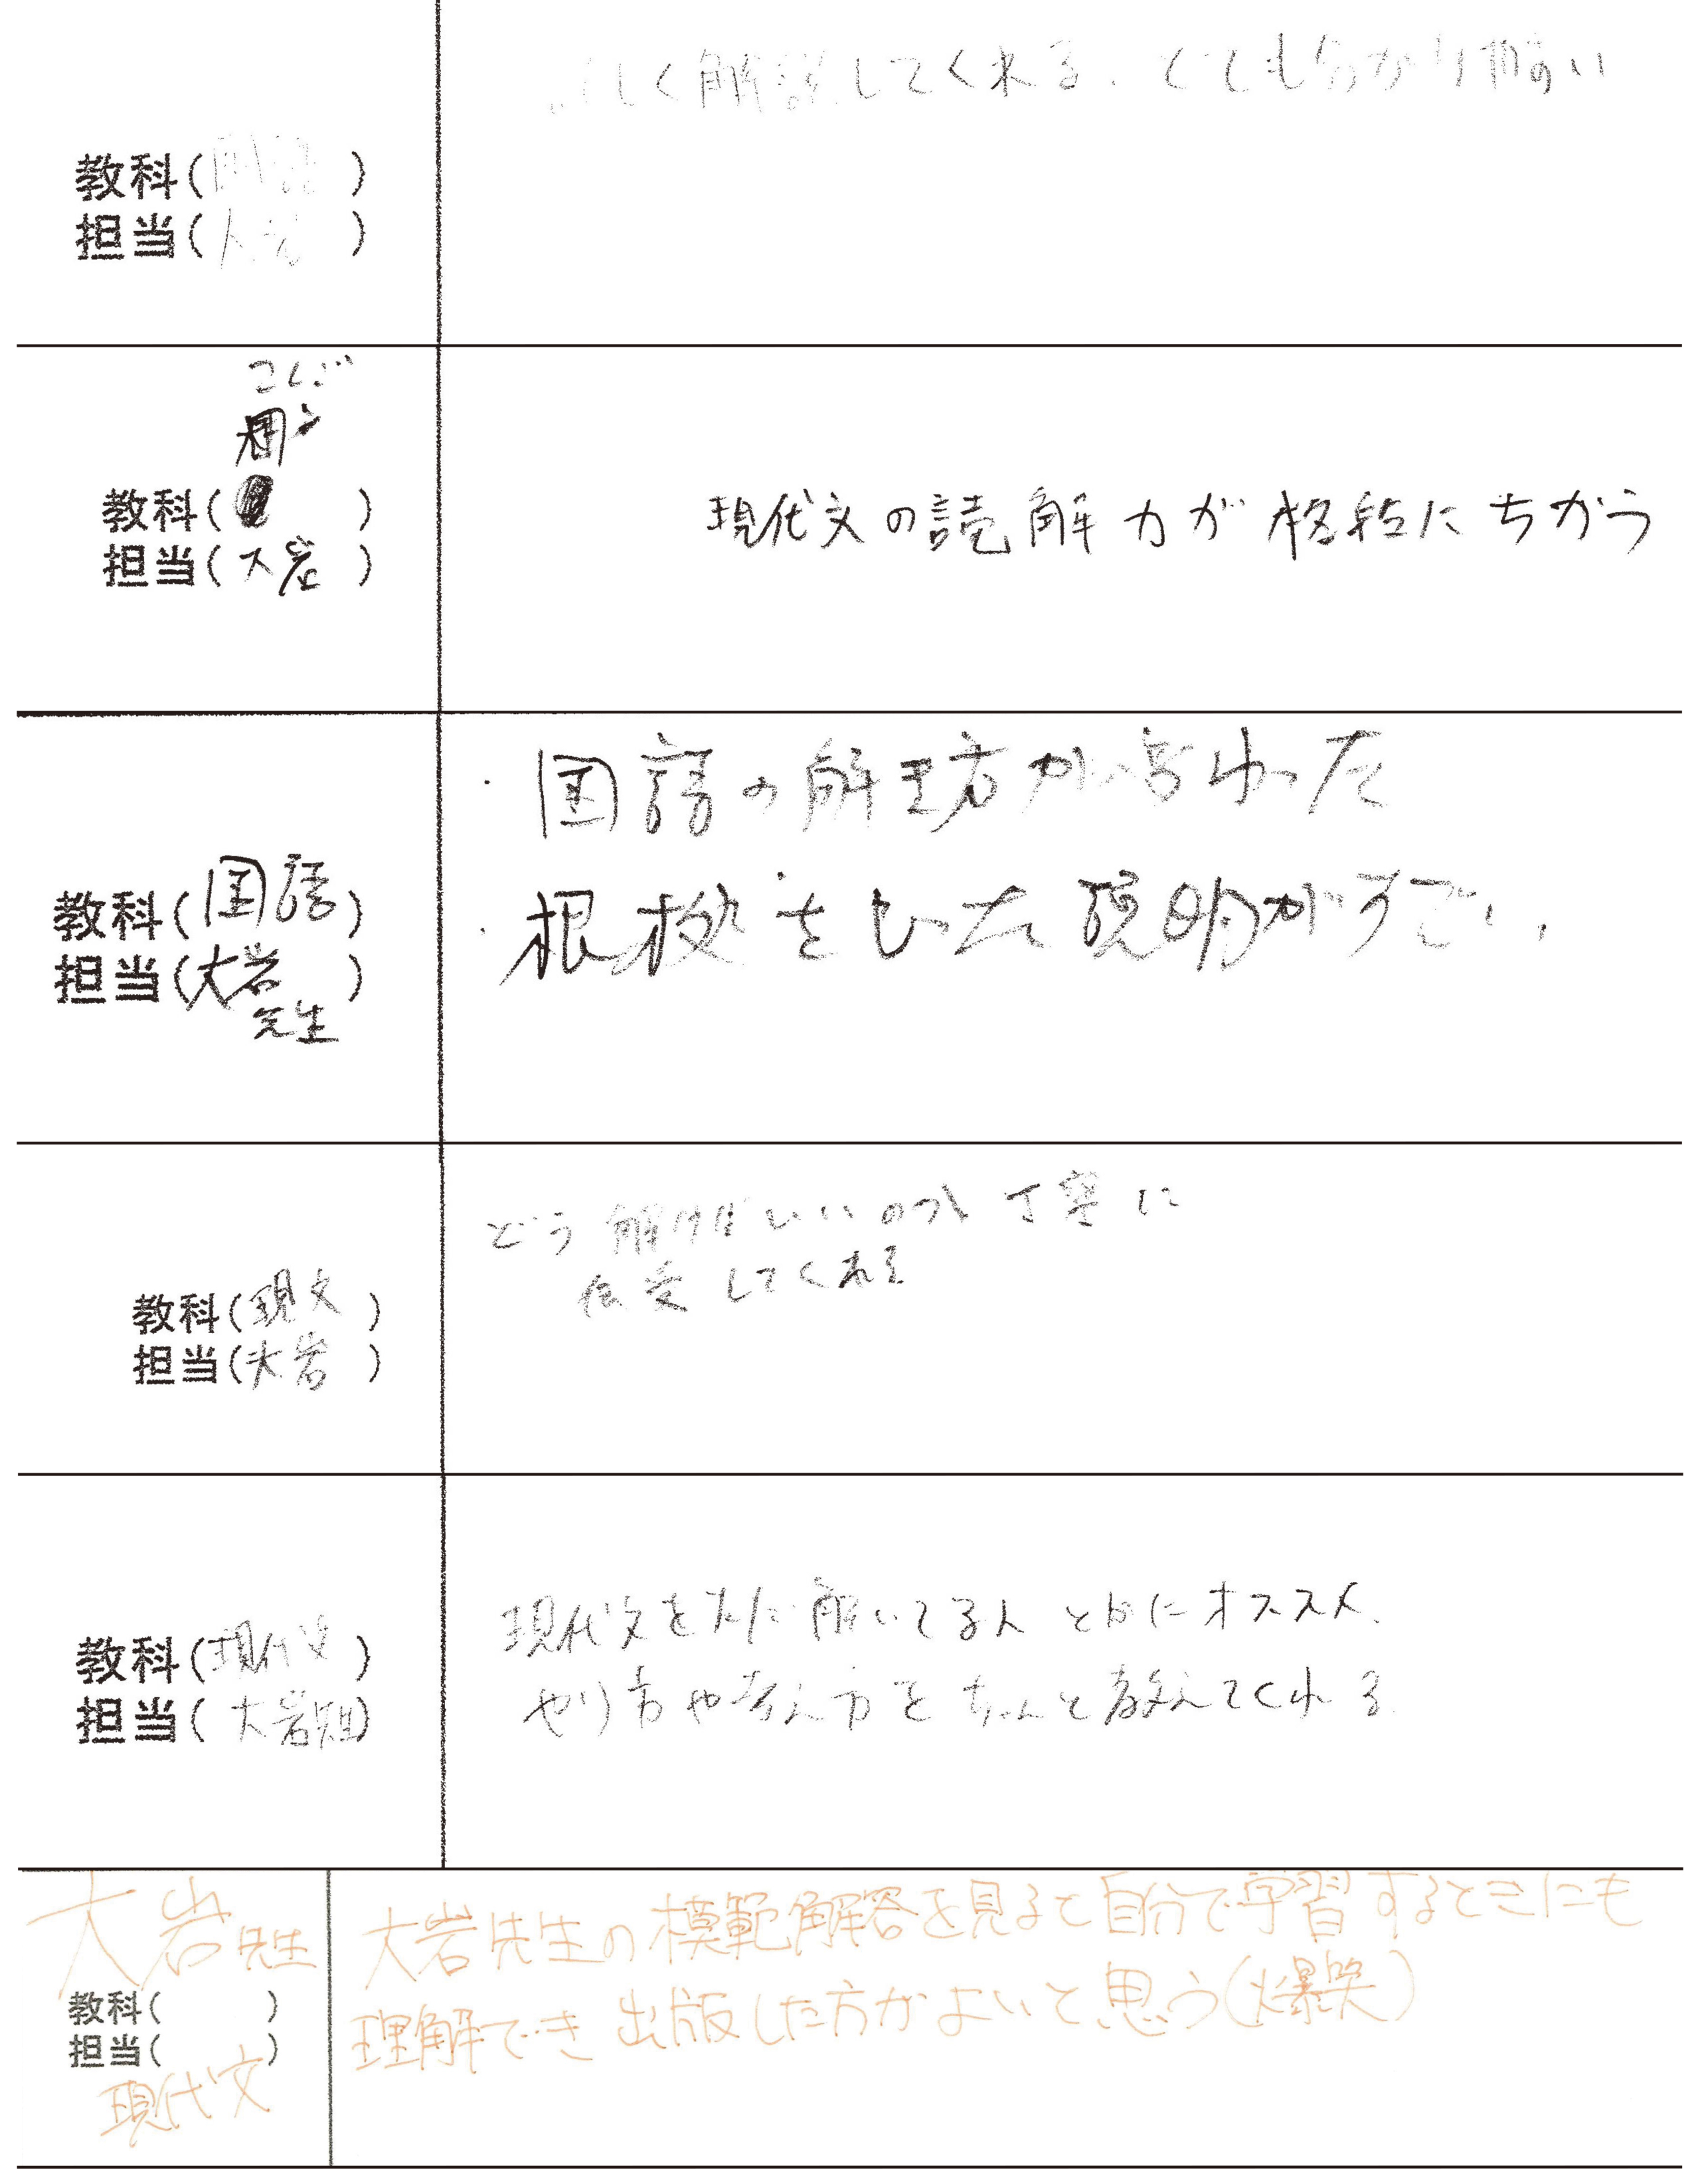 しく解説してくれる. とても分かり
教科(国語)
担当(大岩)
こくご
教科( )
担当(大岩)
現代文の読解力が格段にちがう
・国語の解き方が変わった
・根拠をもった説明がすごい.
教科(国語)
担当(大岩)
先生
どう解けばいいのか丁寧に
伝受してくれる
教科(現文)
担当(大岩)
現代文をただ解いてる人とかにオススメ.
やり方や考え方をちゃんと教えてくれる
教科(現代文)
担当(大岩先生)
大岩先生
教科( )
担当( )
現代文
大岩先生の模範解答を見ると自分で学習するときにも
理解でき出版した方がよいと思う(爆笑)